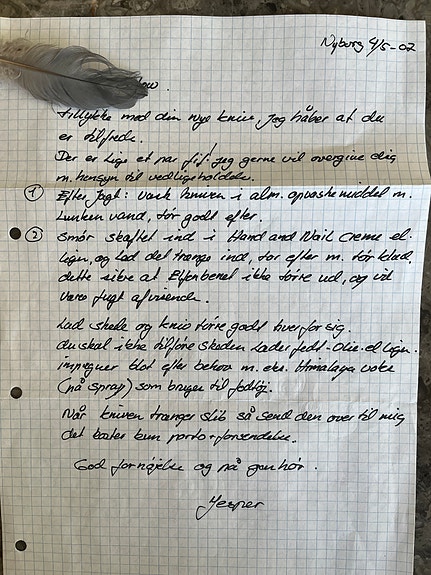 Nyborg 4/5-02
Tillykke med din nye kniv, jeg håber at du
er tilfreds.
Der er lige et par fif jeg gerne vil overgive dig
m. hensyn til vedligeholdelse.
① Efter jagt: vask kniven i alm. opvaskemiddel m.
Lunken vand, tør godt efter.
② Smør skaftet ind i Hand and Nail Creme el-
ligen, og lad det trænge ind, tør efter m. tør klud,
dette sikre at Elfenbenet ikke tørre ud, og vil
være fugt afvisende.
Lad skede og kniv tørre godt hver for sig.
du skal ikke tilføre skeden Læder fedt-Olie-el Ligen.
imprægner blot efter behov m. eks. Himalaya voks
(på spray) som bruges til fodtøj.
Når kniven trænger slib så send den over til mig
det koster kun porto+forsendelse.
God fornøjelse og på genhør.
Jesper